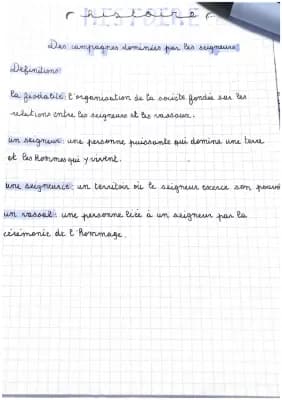 histoire
Des campagnes dominées par les seigneurs
Définitions:
la féodalité: l'organisation de la société fondée sur les
relations entre les seigneurs et les vassaux.
un seigneur: une personne puissante qui domine une terre
et les Hommes qui y vivent.
une seigneurie: un territoir où le seigneur exerce son pouvoi
un vassal: une personne liée à un seigneur par la
cérémonie de l'Hommage.